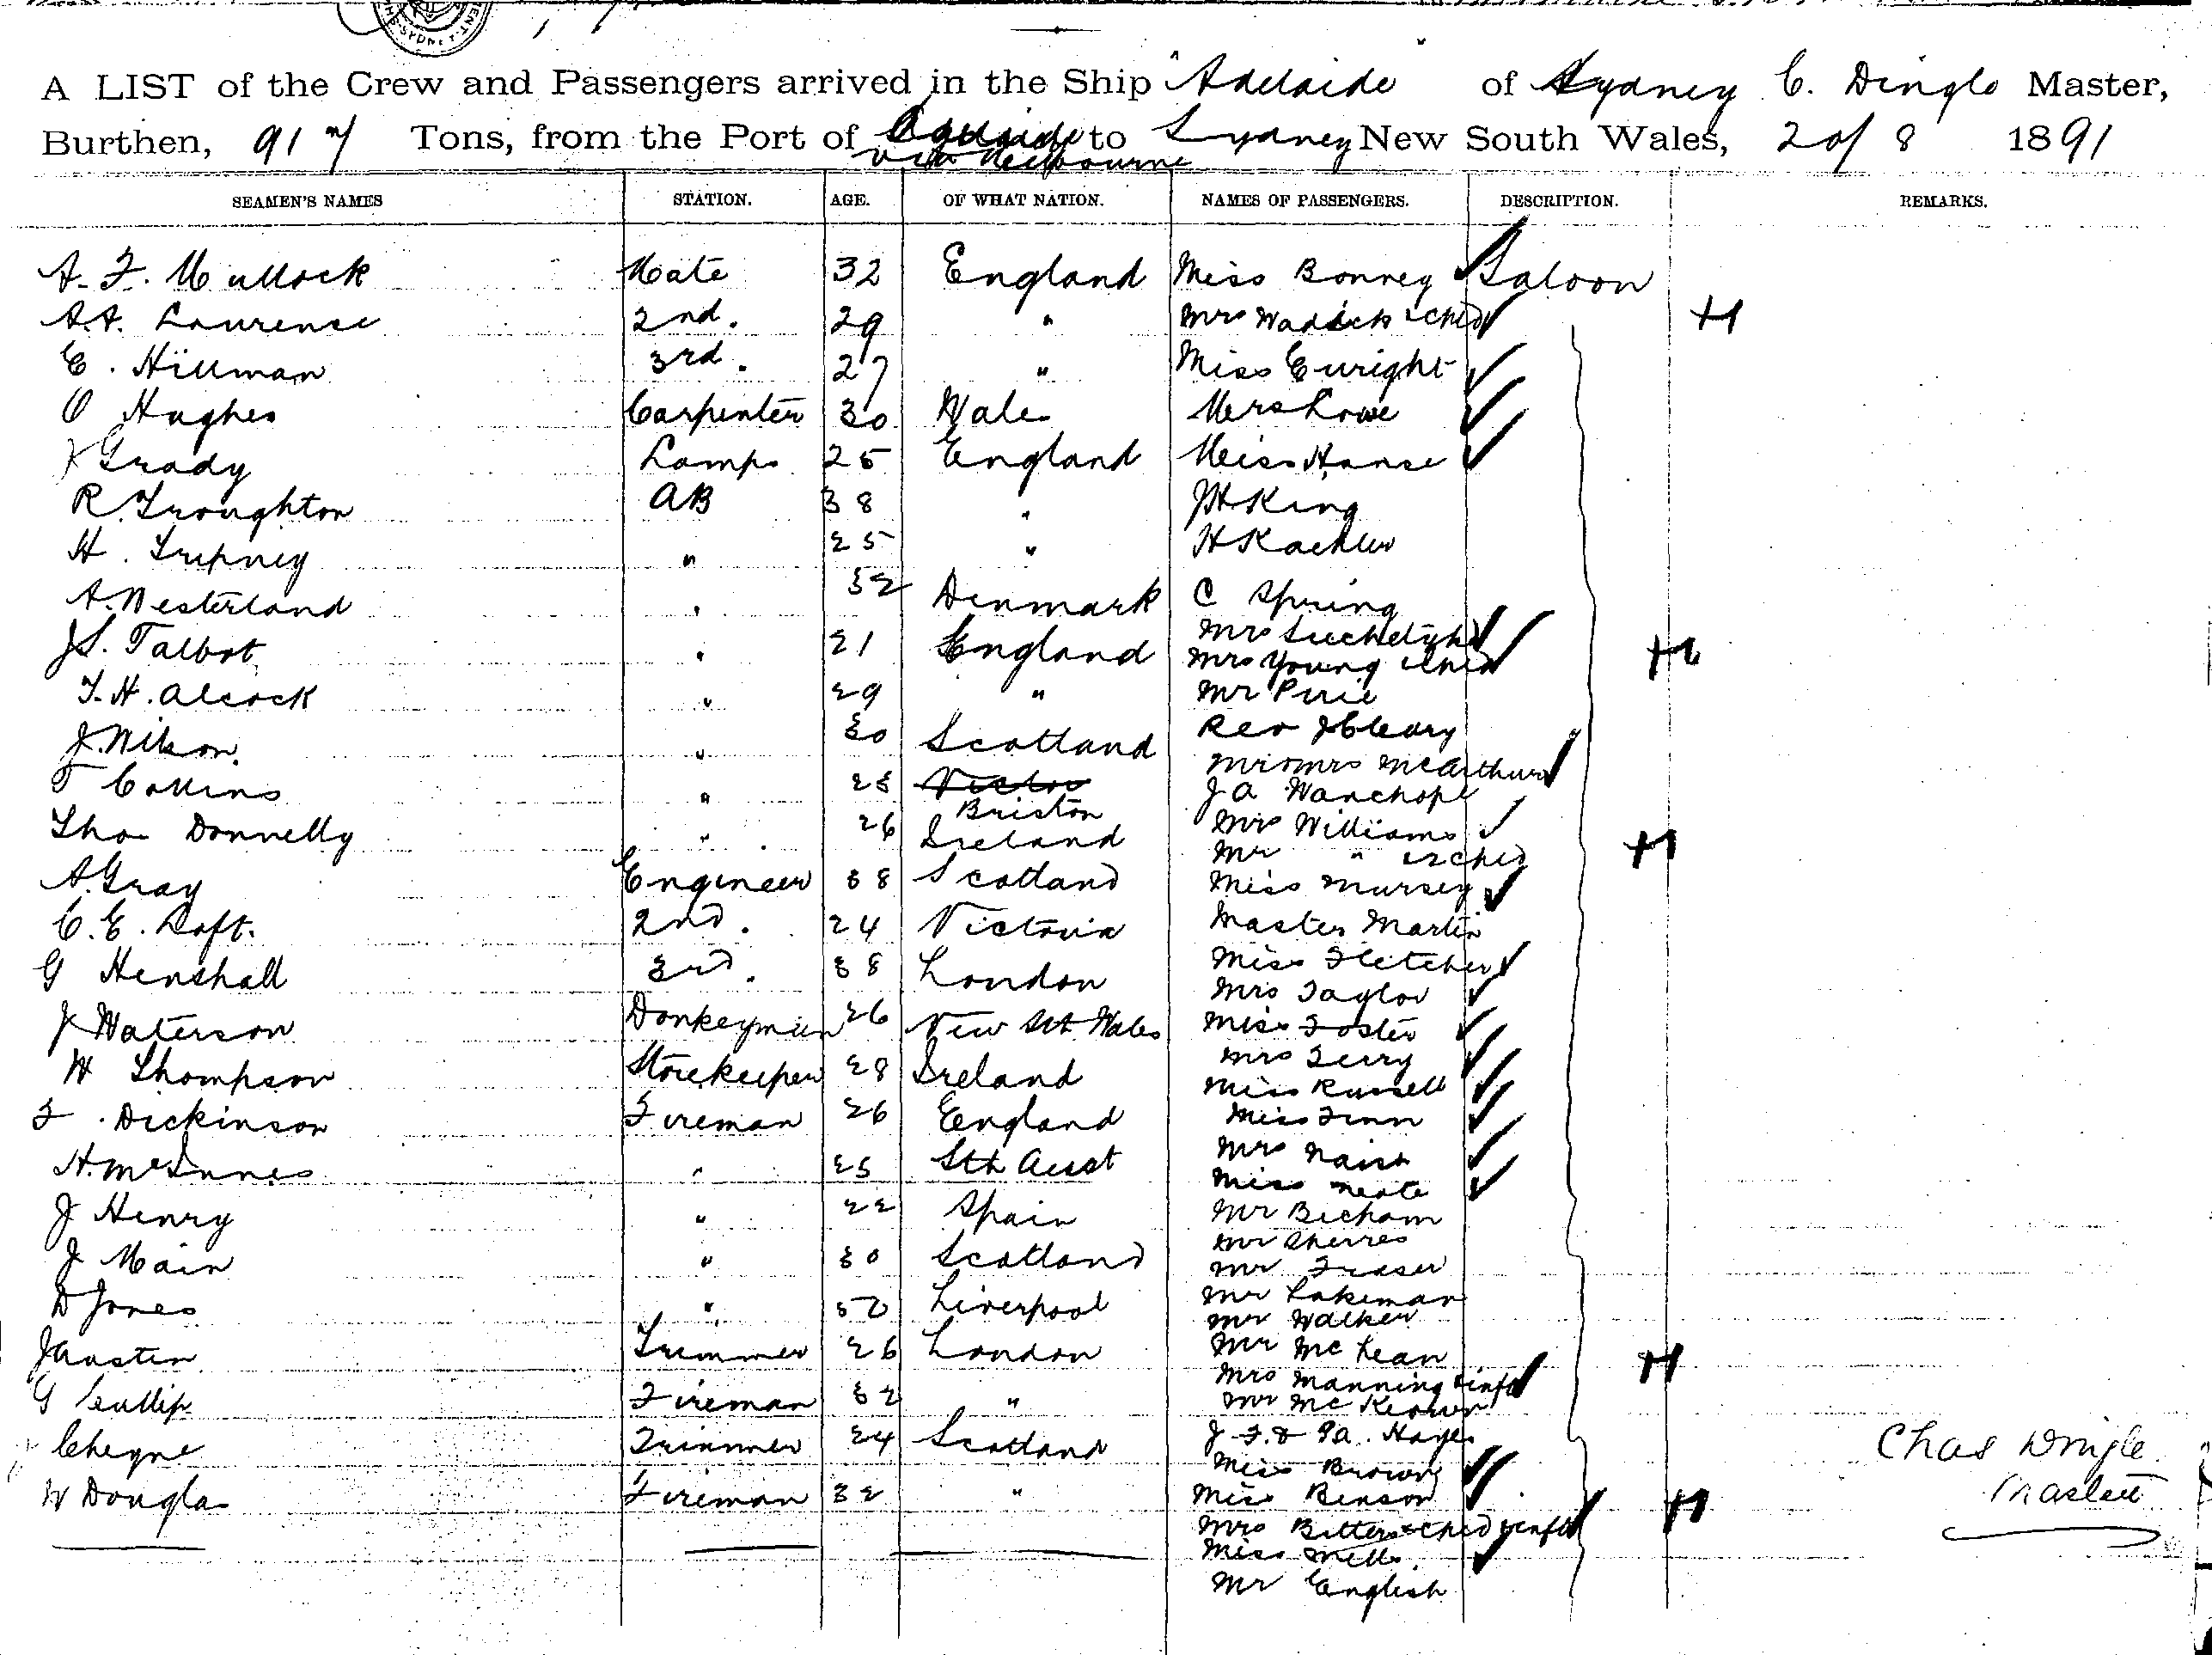 A LIST of the Crew and Passengers arrived in the Ship "Adelaide" of Sydney C. Dingle Master,
Burthen, 917 Tons, from the Port of Adelaide to Sydney New South Wales, 2 of 8 1891
via Melbourne
SEAMEN'S NAMES STATION. AGE. OF WHAT NATION. NAMES OF PASSENGERS. DESCRIPTION. REMARKS.
A. F. Mullock Mate 32 England Miss Bonney Saloon
A.A. Laurense 2nd. 29 " Mrs & child
E. Hillman 3rd. 27 " Miss Enright
O Hughes Carpenter 30 Wales Mrs Lowe
Grady Lamps 25 England Miss Hanse
R. Troughton AB 38 " JH King
H. Tripney " 25 " H Kaehler
A. Westerland " 32 Denmark C Spring
Mrs
J S. Talbot " 21 England Mrs Young & child
T. H. Alcock " 29 " Mr Pirie
J. Wilson " 30 Scotland Rev J Cleary
Mr & Mrs McArthur
T Collins " 25 Victor J A Wauchope
Briston Mrs Williams
Thos Donnelly " 26 Ireland Mr " & 2 child
A. Gray Engineer 38 Scotland Miss Mursey
C. E. Loft. 2nd. 24 Victoria Master Martin
G Henshall 3rd. 38 London Miss Fletcher
Mrs Taylor
J Waterson Donkeyman 26 New Sth Wales Miss Foster
Mrs Terry
H Thompson Storekeeper 28 Ireland Miss Russell
F. Dickinson Fireman 26 England Miss Finn
Mrs Nairn
H. McInnes " 25 Sth Aust Miss Neate
J Henry " 22 Spain Mr Becham
Mr Sherres
J Main " 30 Scotland Mr Fraser
Mr Lakeman
D Jones " 50 Liverpool Mr Walker
J Austin Trimmer 26 London Mr McLean
Mrs Manning & inft
G Cullip Fireman 32 " Mr McKeown
Cheyne Trimmer 24 Scotland J. F. & Pa. Hayes
Miss Brown
Chas Dingle
W Douglas Fireman 32 " Miss Benson
Master
Mrs Bitters & child & inft
Miss Mills
Mr English